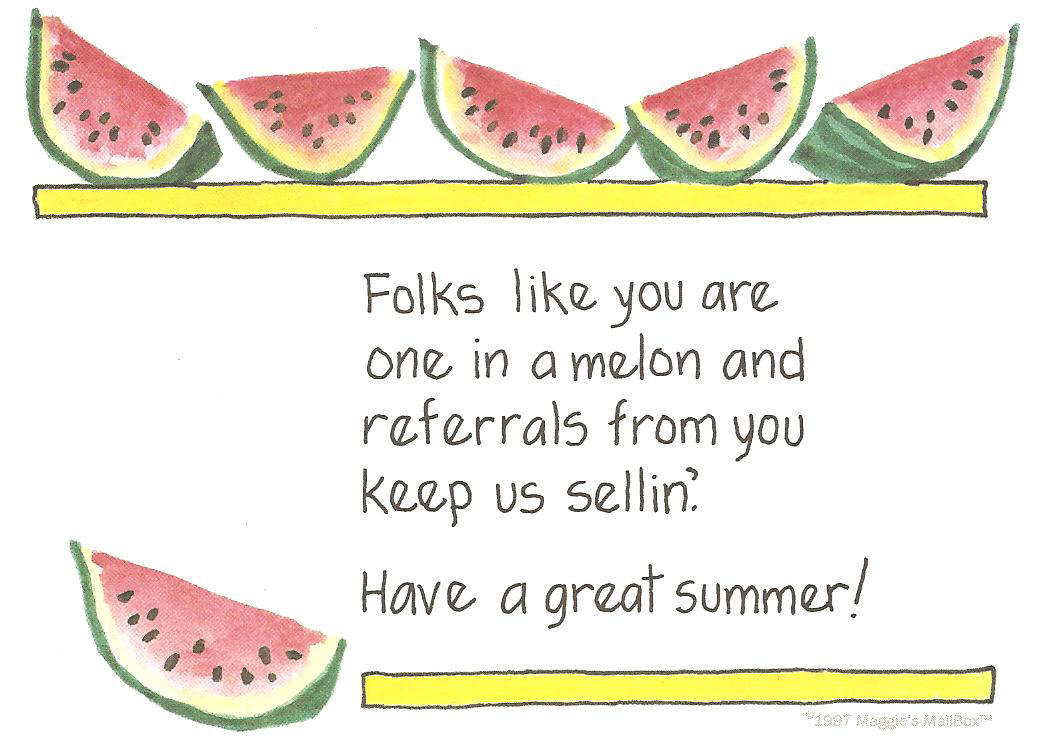 Folks like you are
one in a melon and
referrals from you
keep us sellin'.
Have a great summer!
©1997 Maggie's MailBox™